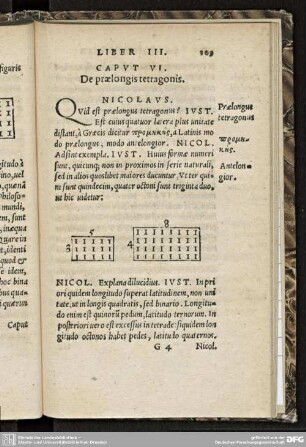 LIBER III. 103
CAPVT VI.
De prælongis tetragonis.
NICOLAVS.
QVid est prælongus tetragonus? IVST.
Est cuius quatuor latera plus unitate
distant, à Græcis dicitur προμηκης, a Latinis mo
do prælongus, modo antelongior. NICOL.
Adsint exempla. IVST. Huius formæ numeri
sunt, quicunq; non in proximos in serie naturali,
sed in alios quoslibet maiores ducuntur, Vt ter qui
ni sunt quindecim, quater octoni sunt triginta duo,
ut hic uidetur:
Prælongus
tetragonus
προμη-
κης.
Antelon-
gior.
5
3
I I I I I
I I I I I
I I I I I
8
4
I I I I I I I I
I I I I I I I I
I I I I I I I I
I I I I I I I I
NICOL. Explana dilucidius. IVST. In pri
ori quidem longitudo superat latitudinem, non uni
tate, ut in longis quadratis, sed binario. Longitu-
do enim est quinorũ pedum, latitudo ternorum. In
posteriori uero est excessus in tetrade: siquidem lon
gitudo octonos habet pedes, latitudo quaternos.
G 4 Nicol.
figuris
Caput
DFG